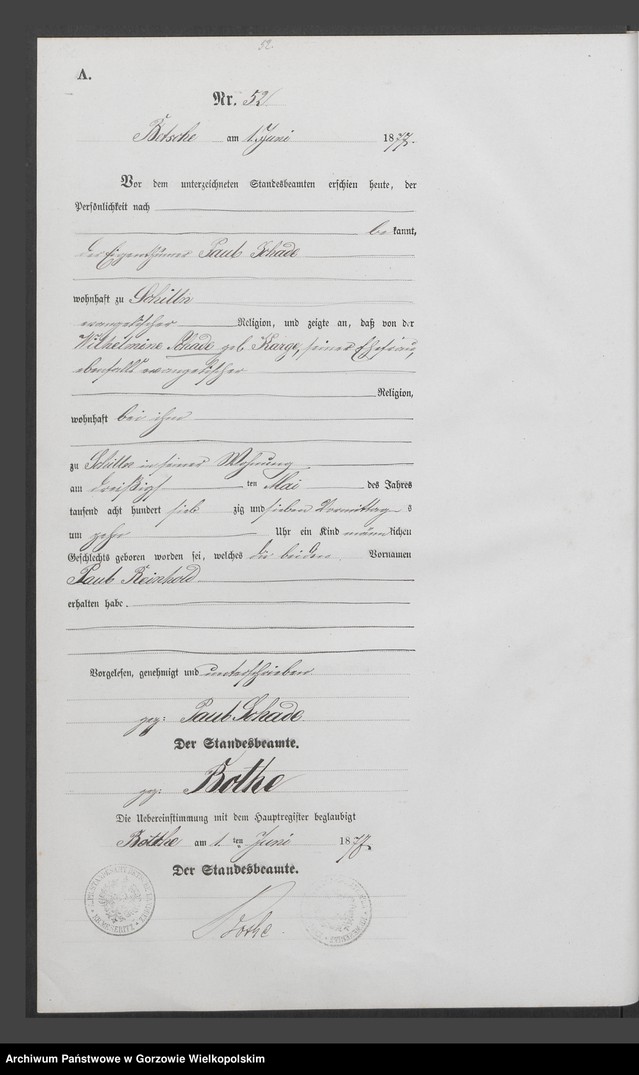 52.
A.
Nr. 52
Betsche am 1. Juni 1877.
Vor dem unterzeichneten Standesbeamten erschien heute, der
Persönlichkeit nach
bekannt,
der Eigenthümer Paul Schade
wohnhaft zu Schilln
evangelischer Religion, und zeigte an, daß von der
Wilhelmine Schade geb. Karge, seiner Ehefrau,
ebenfalls evangelischer
Religion,
wohnhaft bei ihm
zu Schilln in seiner Wohnung
am dreißigsten Mai des Jahres
tausend acht hundert siebzig und sieben Vormittags
um zehn Uhr ein Kind männlichen
Geschlechts geboren worden sei, welches die beiden Vornamen
Paul Reinhold
erhalten habe.
Vorgelesen, genehmigt und unterschrieben
gez: Paul Schade
Der Standesbeamte.
gez: Bothe
Die Uebereinstimmung mit dem Hauptregister beglaubigt
am 1. ten Juni 1877
Der Standesbeamte.
Bothe.
Archiwum Państwowe w Gorzowie Wielkopolskim